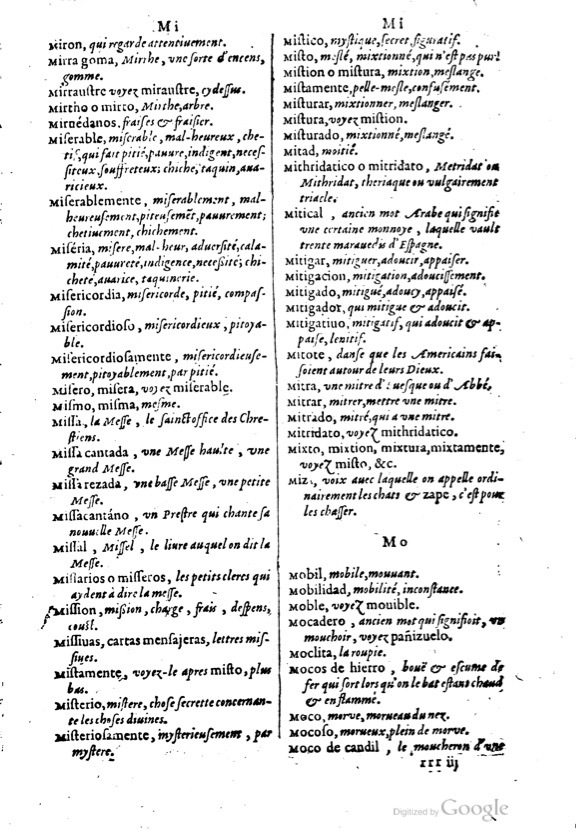 Mi
Miron, qui regarde attentiuement.
Mirra goma, Mirhe, vne sorte d'encens,
gomme.
Mirraustre voyez miraustre, cy dessus.
Mirtho o mirto, Mirthe, arbre.
Miruédanos, fraises & fraisier.
Miserable, miserable, mal-heureux, che-
tif, qui fait pitié, pauure, indigent, neces-
siteux, souffreteux; chiche, taquin, aua-
ricieux.
Miserablemente, miserablement, mal-
heureusement, piteusemẽt, pauurement;
chetiuement, chichement.
Miséria, misere, mal-heur, aduersité, cala-
mité, pauureté, indigence, necessité; chi-
cheté, auarice, taquinerie.
Misericordia, misericorde, pitié, compas-
sion.
Misericordioso, misericordieux, pitoya-
ble.
Misericordiosamente, misericordieuse-
ment, pitoyablement, par pitié.
Misero, misera, voyez miserable.
Mismo, misma, mesme.
Missa, la Messe, le sainct office des Chre-
stiens.
Missa cantada, vne Messe haulte, vne
grand Messe.
Missa rezada, vne basse Messe, vne petite
Messe.
Missacantáno, vn Prestre qui chante sa
nouuelle Messe.
Missal, Missel, le liure auquel on dit la
Messe.
Missarios o misseros, les petits clercs qui
aydent à dire la messe.
Mission, mission, charge, frais, despens,
coust.
Missiuas, cartas mensajeras, lettres mis-
siues.
Mistamente, voyez-le apres misto, plus
bas.
Misterio, mistere, chose secrette concernan-
te les choses diuines.
Misteriosamente, mysterieusement, par
mystere.
Mi
Mistico, mystique, secret, figuratif.
Misto, meslé, mixtionné, qui n'est pas pur.
Mistion o mistura, mixtion, meslange.
Mistamente, pelle-mesle, confusement.
Misturar, mixtionner, meslanger.
Mistura, voyez mistion.
Misturado, mixtionné, meslangé.
Mitad, moitié.
Mithridatico o mitridato, Metridat ou
Mithridat, theriaque ou vulgairement
triacle.
Mitical, ancien mot Arabe qui signifie
vne certaine monnoye, laquelle vault
trente marauedis d'Espagne.
Mitigar, mitiguer, adoucir, appaiser.
Mitigacion, mitigation, adoucissement.
Mitigado, mitigué, adoucy, appaisé.
Mitigador, qui mitigue & adoucit.
Mitigatiuo, mitigatif, qui adoucit & ap-
paise, lenitif.
Mitote, danse que les Americains fai-
soient autour de leurs Dieux.
Mitra, vne mitre d'Euesque ou d'Abbé,
Mitrar, mitrer, mettre vne mitre.
Mitrado, mitré, qui a vne mitre.
Mitridato, voyez mithridatico.
Mixto, mixtion, mixtura, mixtamente,
voyez misto, &c.
Miz, voix auec laquelle on appelle ordi-
nairement les chats & zape, c'est pour
les chasser.
Mo
Mobil, mobile, mouuant.
Mobilidad, mobilité, inconstance.
Moble, voyez mouible.
Mocadero, ancien mot qui signifioit, vn
mouchoir, voyez pañizuelo.
Moclita, la roupie.
Mocos de hierro, bouë & escume de
fer qui sort lors qu'on le bat estans chaud
& enflammé.
Moco, morve, morueau du nez.
Mocoso, morueux, plein de morve.
Moco de candil, le moucheron d'vne
rrr iij
Digitized by Google